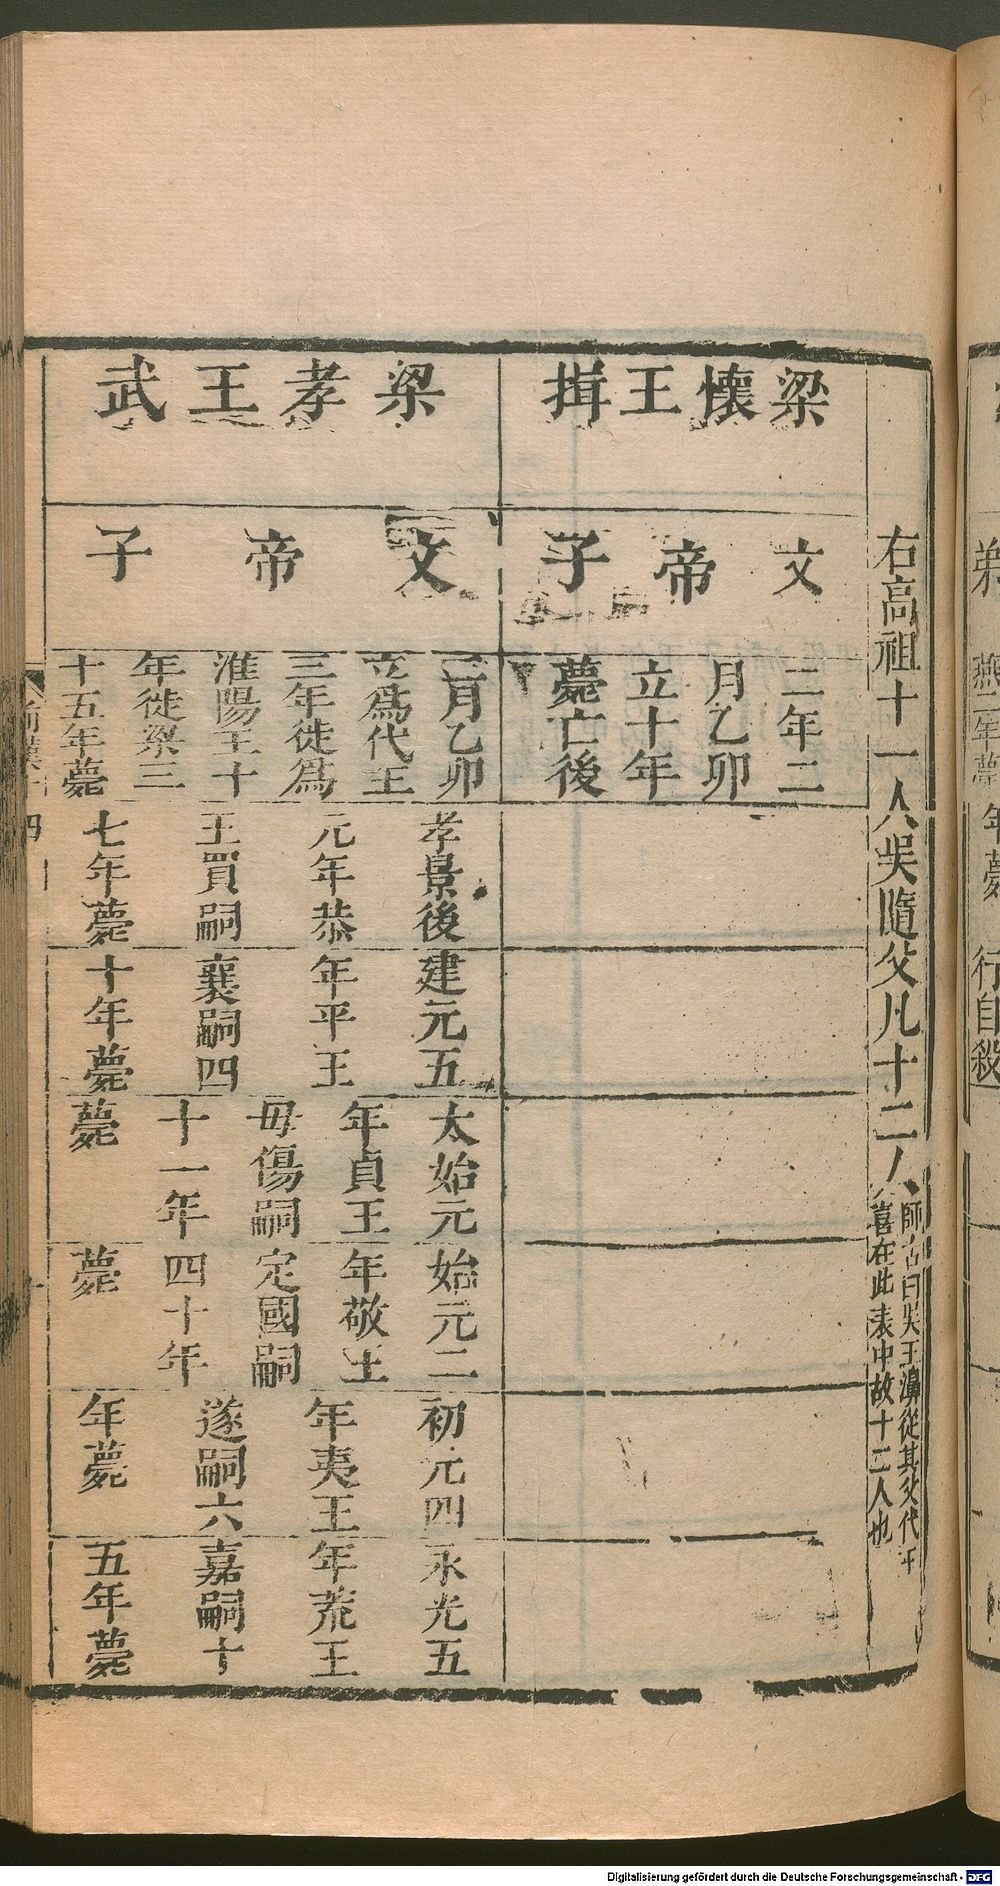 右高祖十一人吳隨父凡十二人
師古曰吳王濞從其父代王
喜在此表中故十二人也
梁懷王揖
文帝子
二年二
月乙卯
立十年
薨亡後
梁孝王武
文帝子
二月乙卯
立爲代王
三年徙爲
淮陽王十
年徙梁三
十五年薨
孝景後
元年恭
王買嗣
七年薨
建元五
年平王
襄嗣四
十年薨
太始元
年貞王
毋傷嗣
十一年
薨
始元二
年敬王
定國嗣
四十年
薨
初元四
年夷王
遂嗣六
年薨
永光五
年荒王
嘉嗣十
五年薨
弟
燕二年薨
年薨
行自殺
四
Digitalisierung gefördert durch die Deutsche Forschungsgemeinschaft - DFG